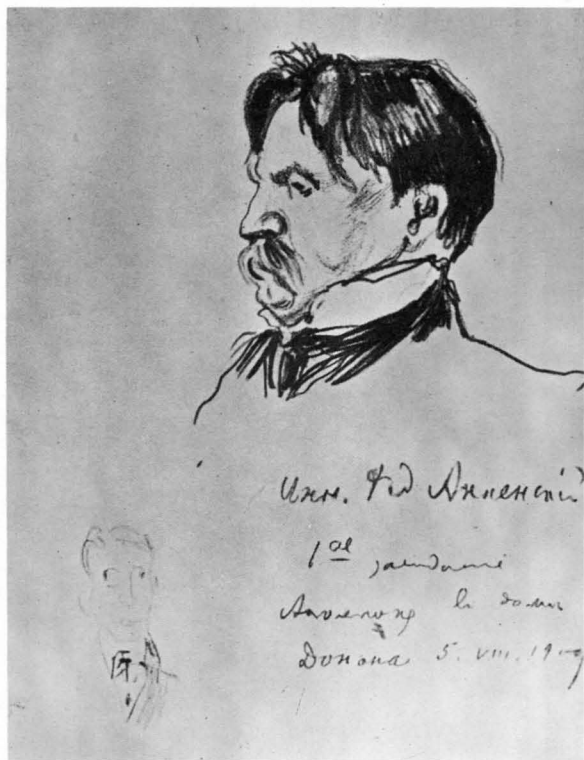 Инн. Фед Анненскій
1ое заседаніе
Аполлона в доми
Донона 5. VIII. 1909